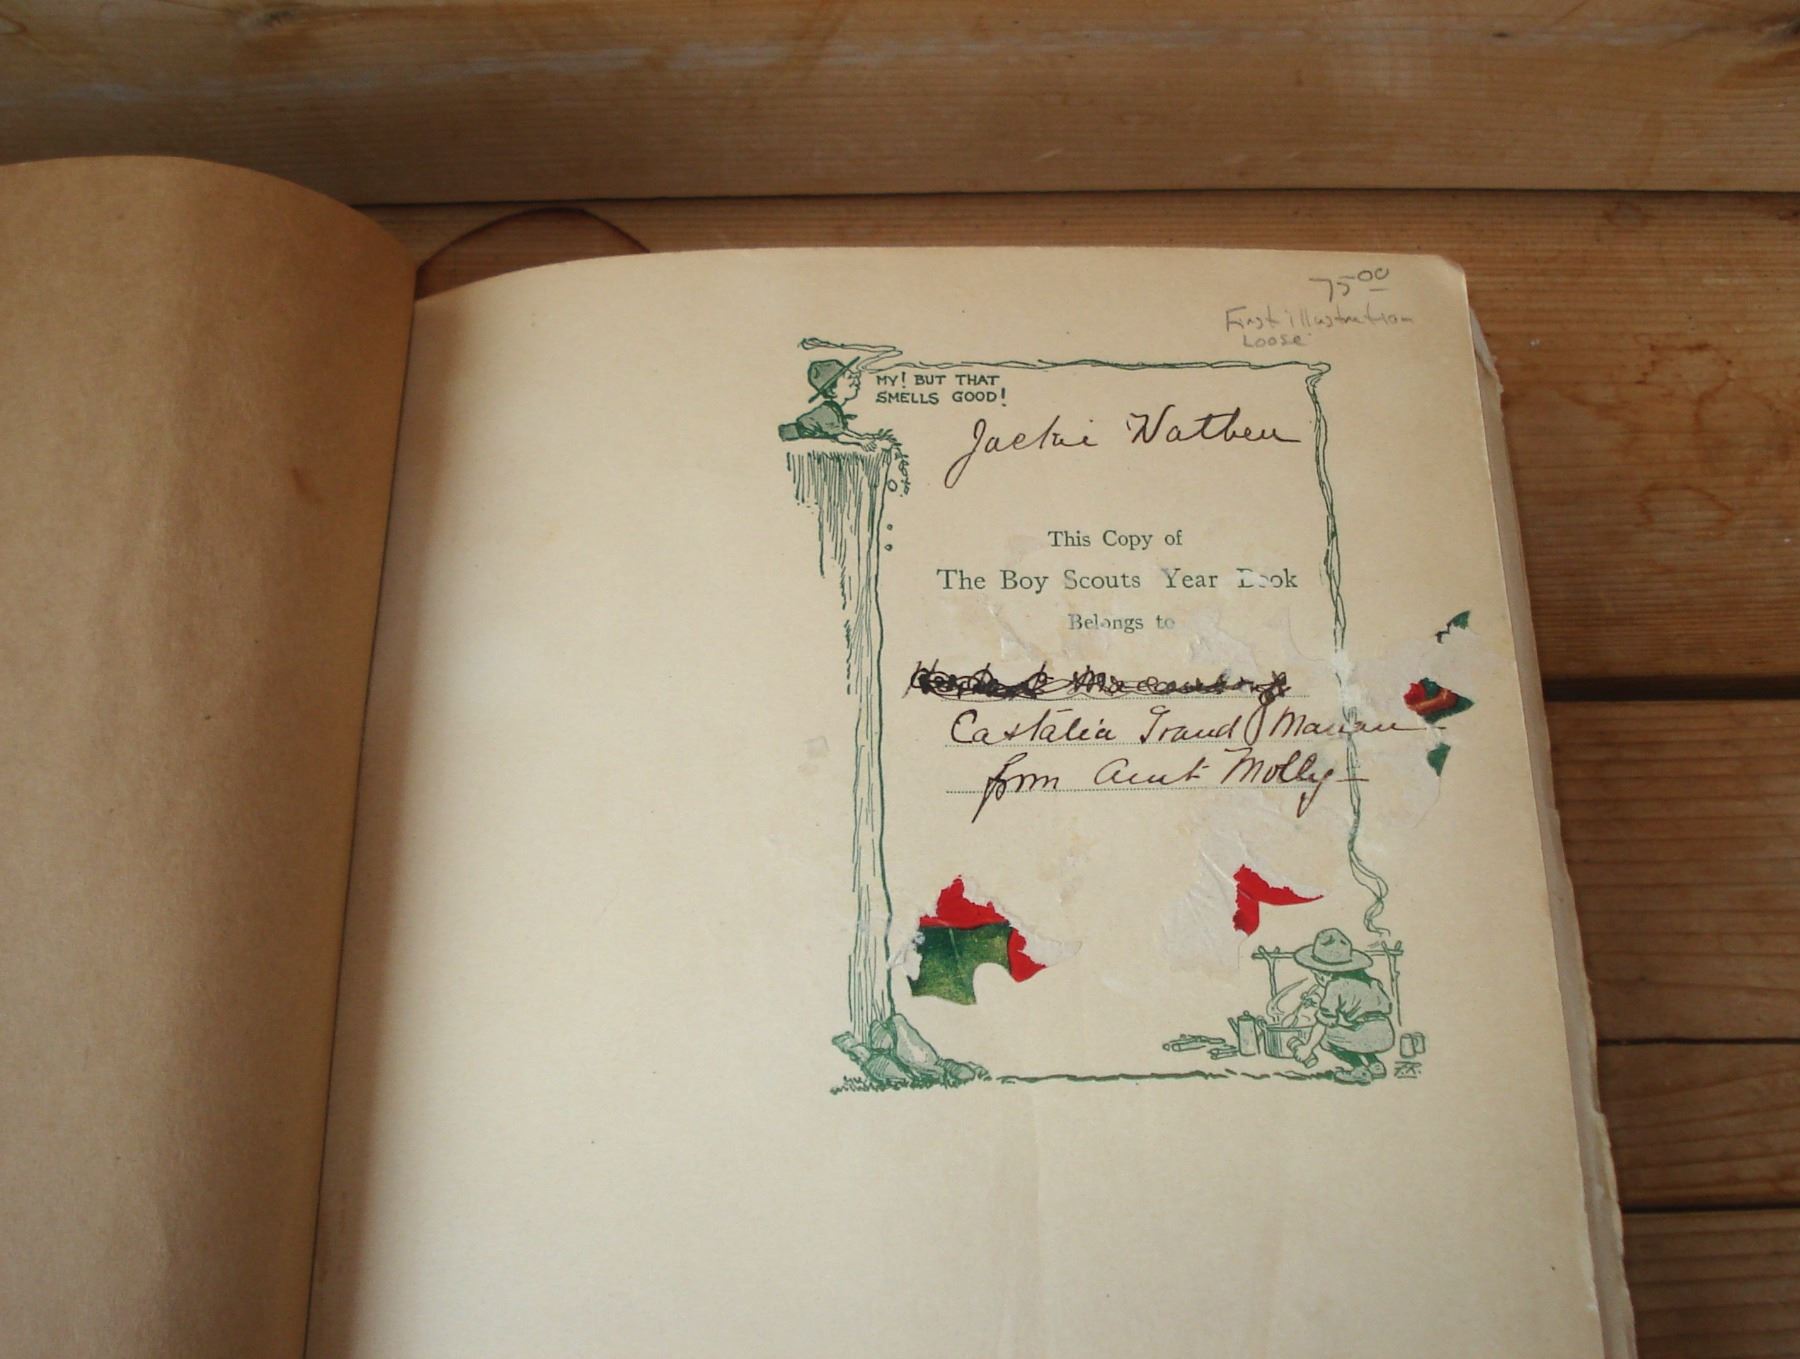 75.00
First illustration
Loose
MY! BUT THAT
SMELLS GOOD!
Jackie Wathen
This Copy of
The Boy Scouts Year Book
Belongs to
Castalia Grand Manan
from Aunt Molly